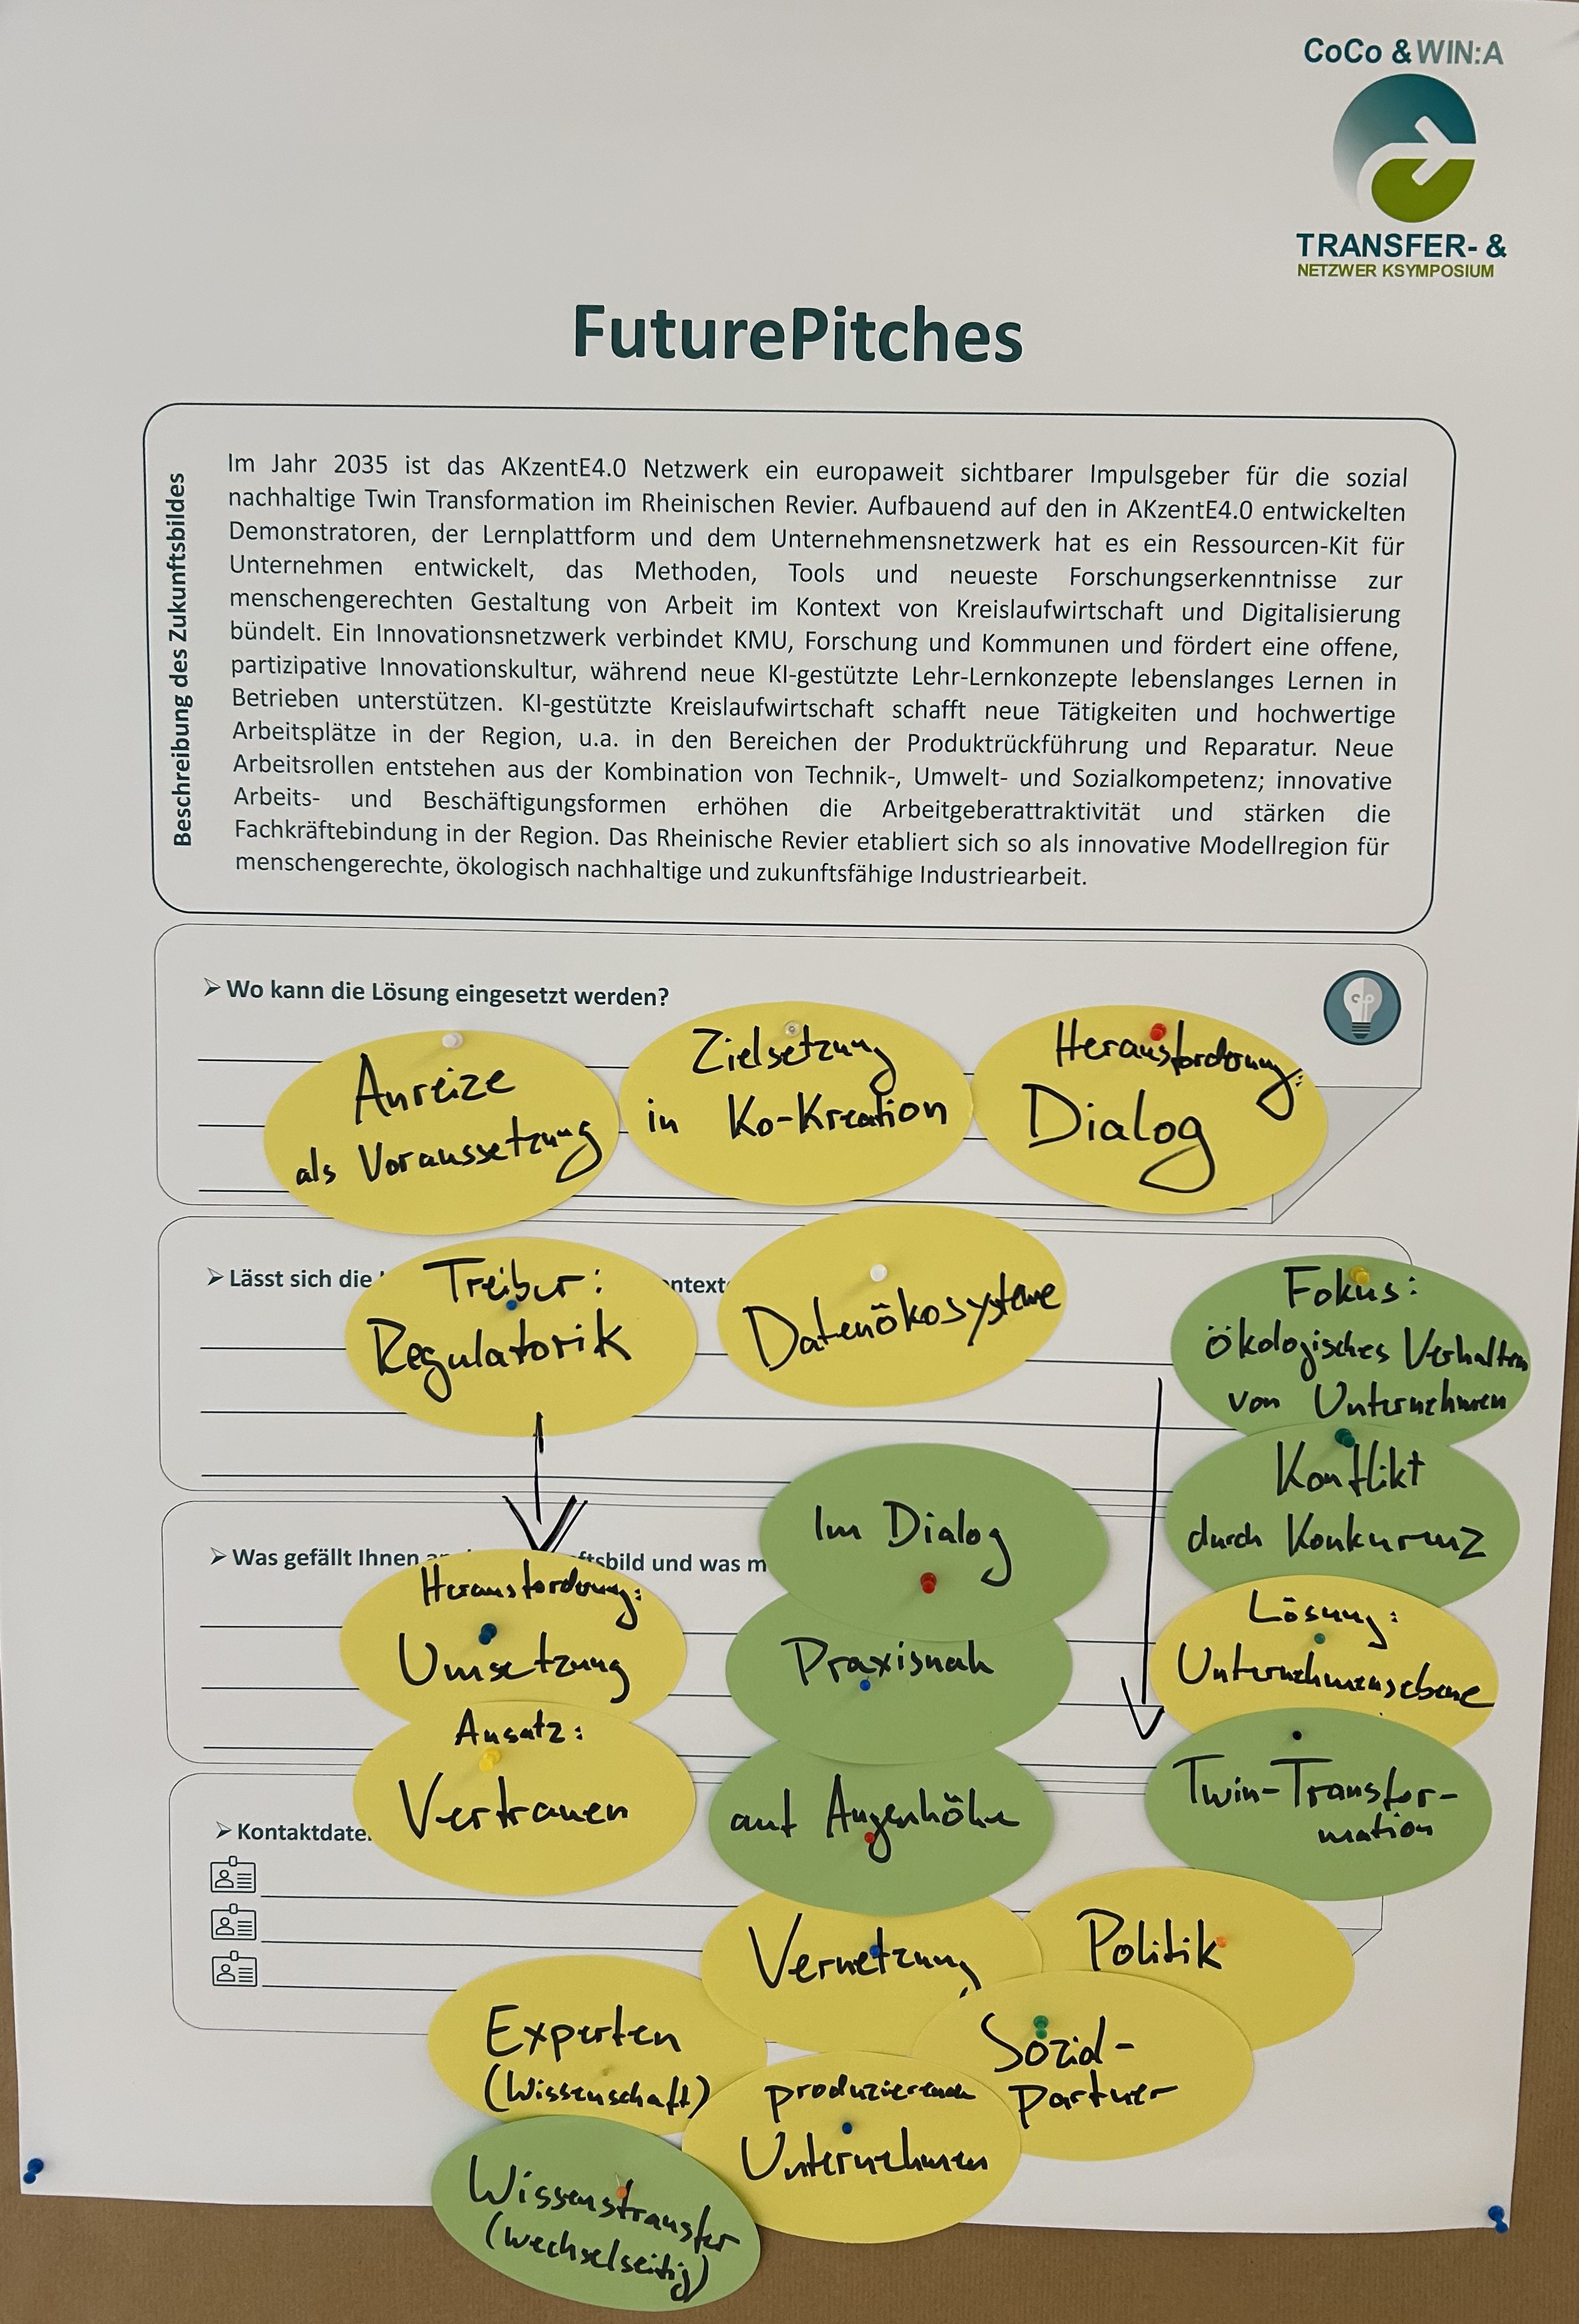 CoCo & WIN:A
TRANSFER- &
NETZWER KSYMPOSIUM
FuturePitches
Beschreibung des Zukunftsbildes
Im Jahr 2035 ist das AKzentE4.0 Netzwerk ein europaweit sichtbarer Impulsgeber für die sozial
nachhaltige Twin Transformation im Rheinischen Revier. Aufbauend auf den in AKzentE4.0 entwickelten
Demonstratoren, der Lernplattform und dem Unternehmensnetzwerk hat es ein Ressourcen-Kit für
Unternehmen entwickelt, das Methoden, Tools und neueste Forschungserkenntnisse zur
menschengerechten Gestaltung von Arbeit im Kontext von Kreislaufwirtschaft und Digitalisierung
bündelt. Ein Innovationsnetzwerk verbindet KMU, Forschung und Kommunen und fördert eine offene,
partizipative Innovationskultur, während neue KI-gestützte Lehr-Lernkonzepte lebenslanges Lernen in
Betrieben unterstützen. KI-gestützte Kreislaufwirtschaft schafft neue Tätigkeiten und hochwertige
Arbeitsplätze in der Region, u.a. in den Bereichen der Produktrückführung und Reparatur. Neue
Arbeitsrollen entstehen aus der Kombination von Technik-, Umwelt- und Sozialkompetenz; innovative
Arbeits- und Beschäftigungsformen erhöhen die Arbeitgeberattraktivität und stärken die
Fachkräftebindung in der Region. Das Rheinische Revier etabliert sich so als innovative Modellregion für
menschengerechte, ökologisch nachhaltige und zukunftsfähige Industriearbeit.
Wo kann die Lösung eingesetzt werden?
Anreize
als Voraussetzung
Zielsetzung
in Ko-Kreation
Herausforderung:
Dialog
Lässt sich die
Treiber:
Regulatorik
Datenökosysteme
Fokus:
ökologisches Verhalten
von Unternehmen
Konflikt
durch Konkurrenz
Lösung:
Unternehmensebene
Twin-Transfor-
mation
Was gefällt Ihnen
ftsbild und was m
Herausforderung:
Umsetzung
Ansatz:
Vertrauen
Im Dialog
Praxisnah
auf Augenhöhe
Kontaktdate
Vernetzung
Politik
Experten
(Wissenschaft)
Sozial-
Partner
produzierende
Unternehmen
Wissenstransfer
(wechselseitig)